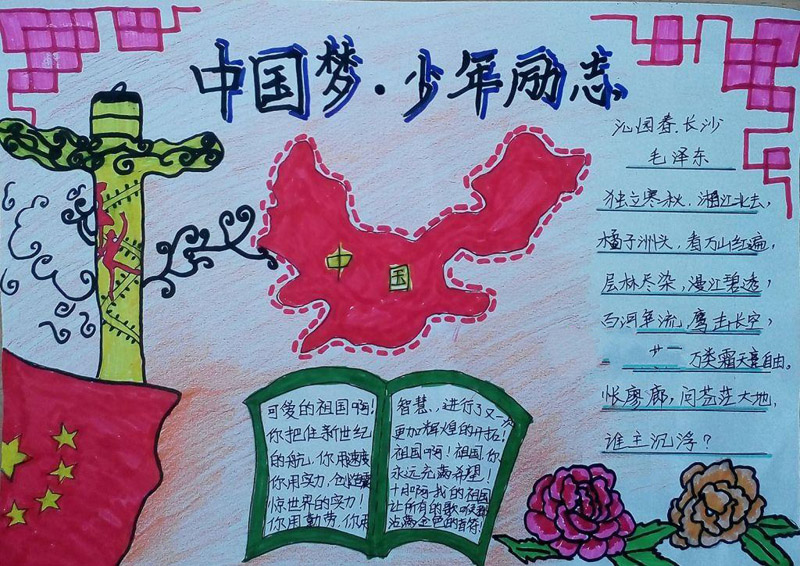 中国梦·少年励志
中国
沁园春·长沙
毛泽东
独立寒秋,湘江北去,
橘子洲头,看万山红遍,
层林尽染,漫江碧透,
百河争流,鹰击长空,
万类霜天竟自由。
怅廖廊,问苍茫大地,
谁主沉浮?
可爱的祖国啊!
你把住新世纪
的航,你用速度
你用实力,
惊世界的实力!
你用勤劳,你用
智慧,,进行了又一次
更加辉煌的开拓!
祖国啊!祖国,你
永远充满希望!
十月啊,我的祖国
让所有的歌
沾满金色的音符!